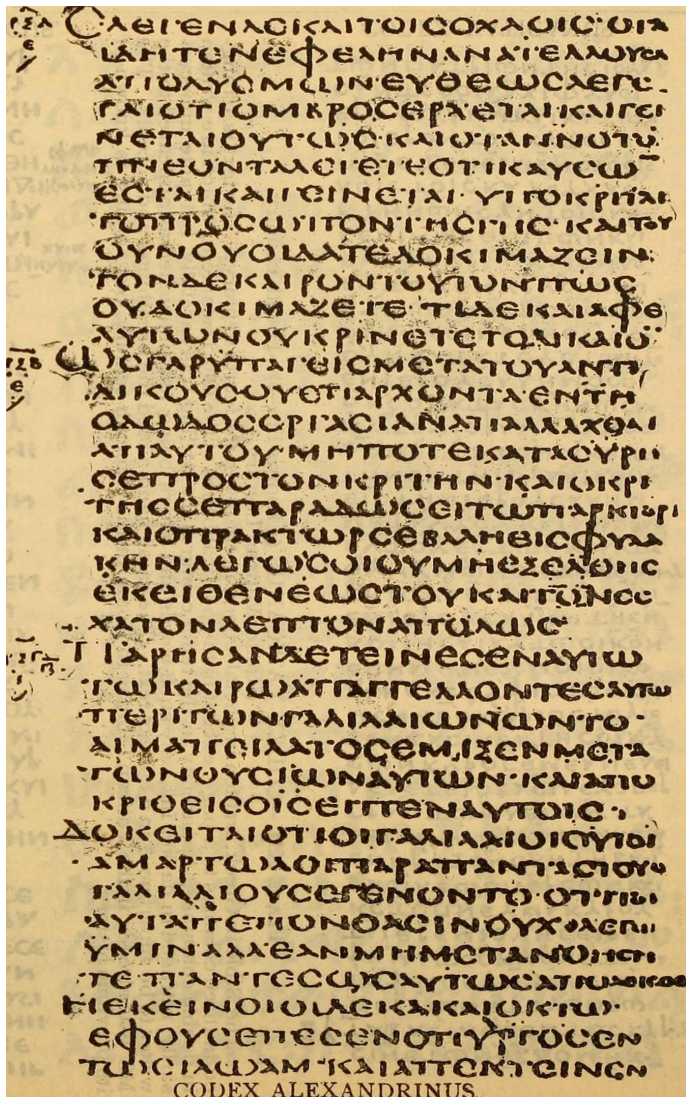 ϹΛΕΓΕΝΔϹΚΑΙΤΟΙϹΟΧΛΟΙϹ·ΟΤΑ
ΙΔΗΤΕΝΕΦΕΛΗΝΑΝΑΤΕΛΛΟΥϹΑ
ΑΠΟΔΥϹΜΩΝ·ΕΥΘΕΩϹΛΕΓΕ
ΤΑΙΟΤΙΟΜΒΡΟϹΕΡΧΕΤΑΙ·ΚΑΙΓΕΙ
ΝΕΤΑΙΟΥΤΩϹ·ΚΑΙΟΤΑΝΝΟΤΟ
ΠΝΕΟΝΤΑΛΕΓΕΤΕΟΤΙΚΑΥϹΩ̅
ΕϹΤΑΙΚΑΙΓΕΙΝΕΤΑΙ·ΥΠΟΚΡΙΤΑΙ
ΤΟΠΡΟϹΩΠΟΝΤΗϹΓΗϹ·ΚΑΙΤΟΥ
ΟΥΝΟΥΟΙΔΑΤΕΔΟΚΙΜΑΖΕΙΝ
ΤΟΝΔΕΚΑΙΡΟΝΤΟΥΤΟΝΠΩϹ
ΟΥΔΟΚΙΜΑΖΕΤΕ·ΤΙΔΕΚΑΙΑΦΕ
ΑΥΤΩΝΟΥΚΡΙΝΕΤΕΤΟΔΙΚΑΙΟ̅
ΩϹΓΑΡΥΠΑΓΕΙϹΜΕΤΑΤΟΥΑΝΤΙ
ΔΙΚΟΥϹΟΥΕΠΑΡΧΟΝΤΑΕΝΤΗ
ΟΔΩΔΟϹΕΡΓΑϹΙΑΝΑΠΑΛΛΑΧΘΑΙ
ΑΠΑΥΤΟΥ·ΜΗΠΟΤΕΚΑΤΑϹΥΡΗ
ϹΕΠΡΟϹΤΟΝΚΡΙΤΗΝ·ΚΑΙΟΚΡΙ
ΤΗϹϹΕΠΑΡΑΔΩϹΕΙΤΩΠΡΑΚΤΟΡΙ
ΚΑΙΟΠΡΑΚΤΩΡϹΕΒΑΛΗΕΙϹΦΥΛΑ
ΚΗΝ·ΛΕΓΩϹΟΙΟΥΜΗΕΞΕΛΘΗϹ
ΕΚΕΙΘΕΝΕΩϹΤΟΥΚΑΙΤΟΝΕϹ
ΧΑΤΟΝΛΕΠΤΟΝΑΠΟΔΩϹ
ΠΑΡΗϹΑΝΔΕΤΕΙΝΕϹΕΝΑΥΤΩ
ΤΩΚΑΙΡΩΑΠΑΓΓΕΛΛΟΝΤΕϹΑΥΤΩ
ΠΕΡΙΤΩΝΓΑΛΙΛΑΙΩΝΩΝΤΟ
ΑΙΜΑΠΕΙΛΑΤΟϹΕΜΙΞΕΝΜΕΤΑ
ΤΩΝΘΥϹΙΩΝΑΥΤΩΝ·ΚΑΙΑΠΟ
ΚΡΙΘΕΙϹΟΙϹΕΙΠΕΝΑΥΤΟΙϹ·
ΔΟΚΕΙΤΑΙΟΤΙΟΙΓΑΛΙΛΑΙΟΙΟΥΤΟΙ
ΑΜΑΡΤΩΛΟΙΠΑΡΑΠΑΝΤΑϹΤΟΥϹ
ΓΑΛΙΛΑΙΟΥϹΕΓΕΝΟΝΤΟ·ΟΤΙΤΟΙ
ΑΥΤΑΠΕΠΟΝΘΑϹΙΝΟΥΧΙΛΕΓΩ
ΥΜΙΝ·ΑΛΛΕΑΝΜΗΜΕΤΑΝΟΗϹΗ
ΤΕΠΑΝΤΕϹΩϹΑΥΤΩϹΑΠΟΛΕΙϹΘΕ
ΗΕΚΕΙΝΟΙΟΙΔΕΚΑΚΑΙΟΚΤΩ
ΕΦΟΥϹΕΠΕϹΕΝΟΠΥΡΓΟϹΕΝ
ΤΩϹΙΛΩΑΜ·ΚΑΙΑΠΕΚΤΕΙΝΕΝ
CODEX ALEXANDRINUS.